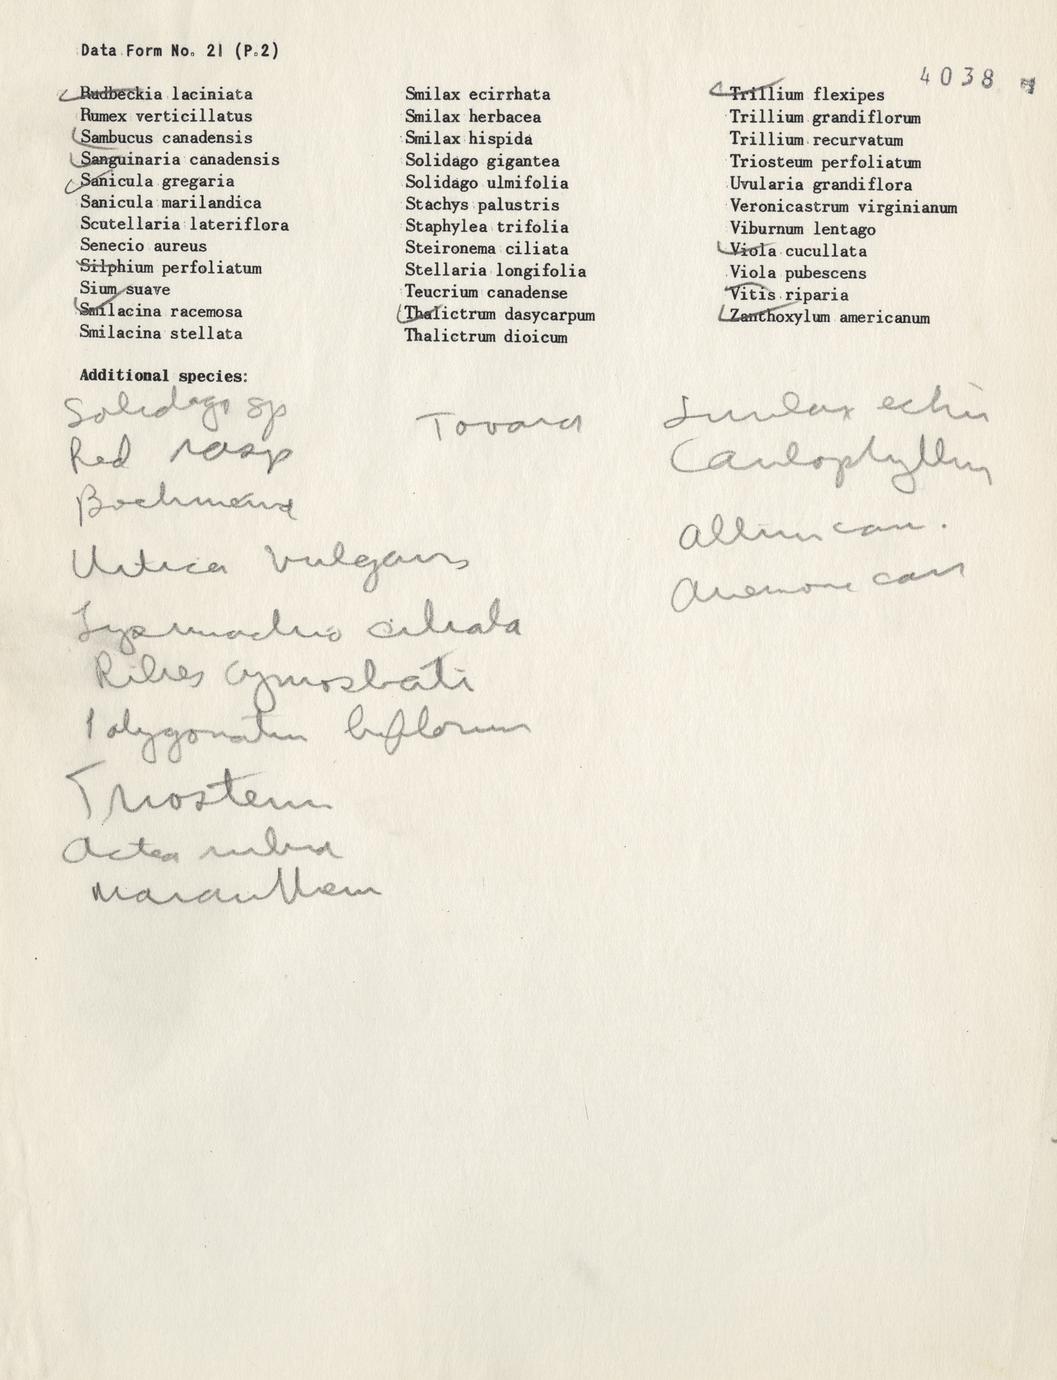 Data Form No. 21 (P.2)
4038
Rudbeckia laciniata
Rumex verticillatus
Sambucus canadensis
Sanguinaria canadensis
Sanicula gregaria
Sanicula marilandica
Scutellaria lateriflora
Senecio aureus
Silphium perfoliatum
Sium suave
Smilacina racemosa
Smilacina stellata
Smilax ecirrhata
Smilax herbacea
Smilax hispida
Solidago gigantea
Solidago ulmifolia
Stachys palustris
Staphylea trifolia
Steironema ciliata
Stellaria longifolia
Teucrium canadense
Thalictrum dasycarpum
Thalictrum dioicum
Trillium flexipes
Trillium grandiflorum
Trillium recurvatum
Triosteum perfoliatum
Uvularia grandiflora
Veronicastrum virginianum
Viburnum lentago
Viola cucullata
Viola pubescens
Vitis riparia
Zanthoxylum americanum
Additional species:
Solidago sp
Red rasp
Urtica vulgaris
ciliata
Ribes cynosbati
Polygonatum biflorum
Triosteum
Actea rubra
Tovara
Smilax echir
Caulophyllum
Allium can.
Anemone can